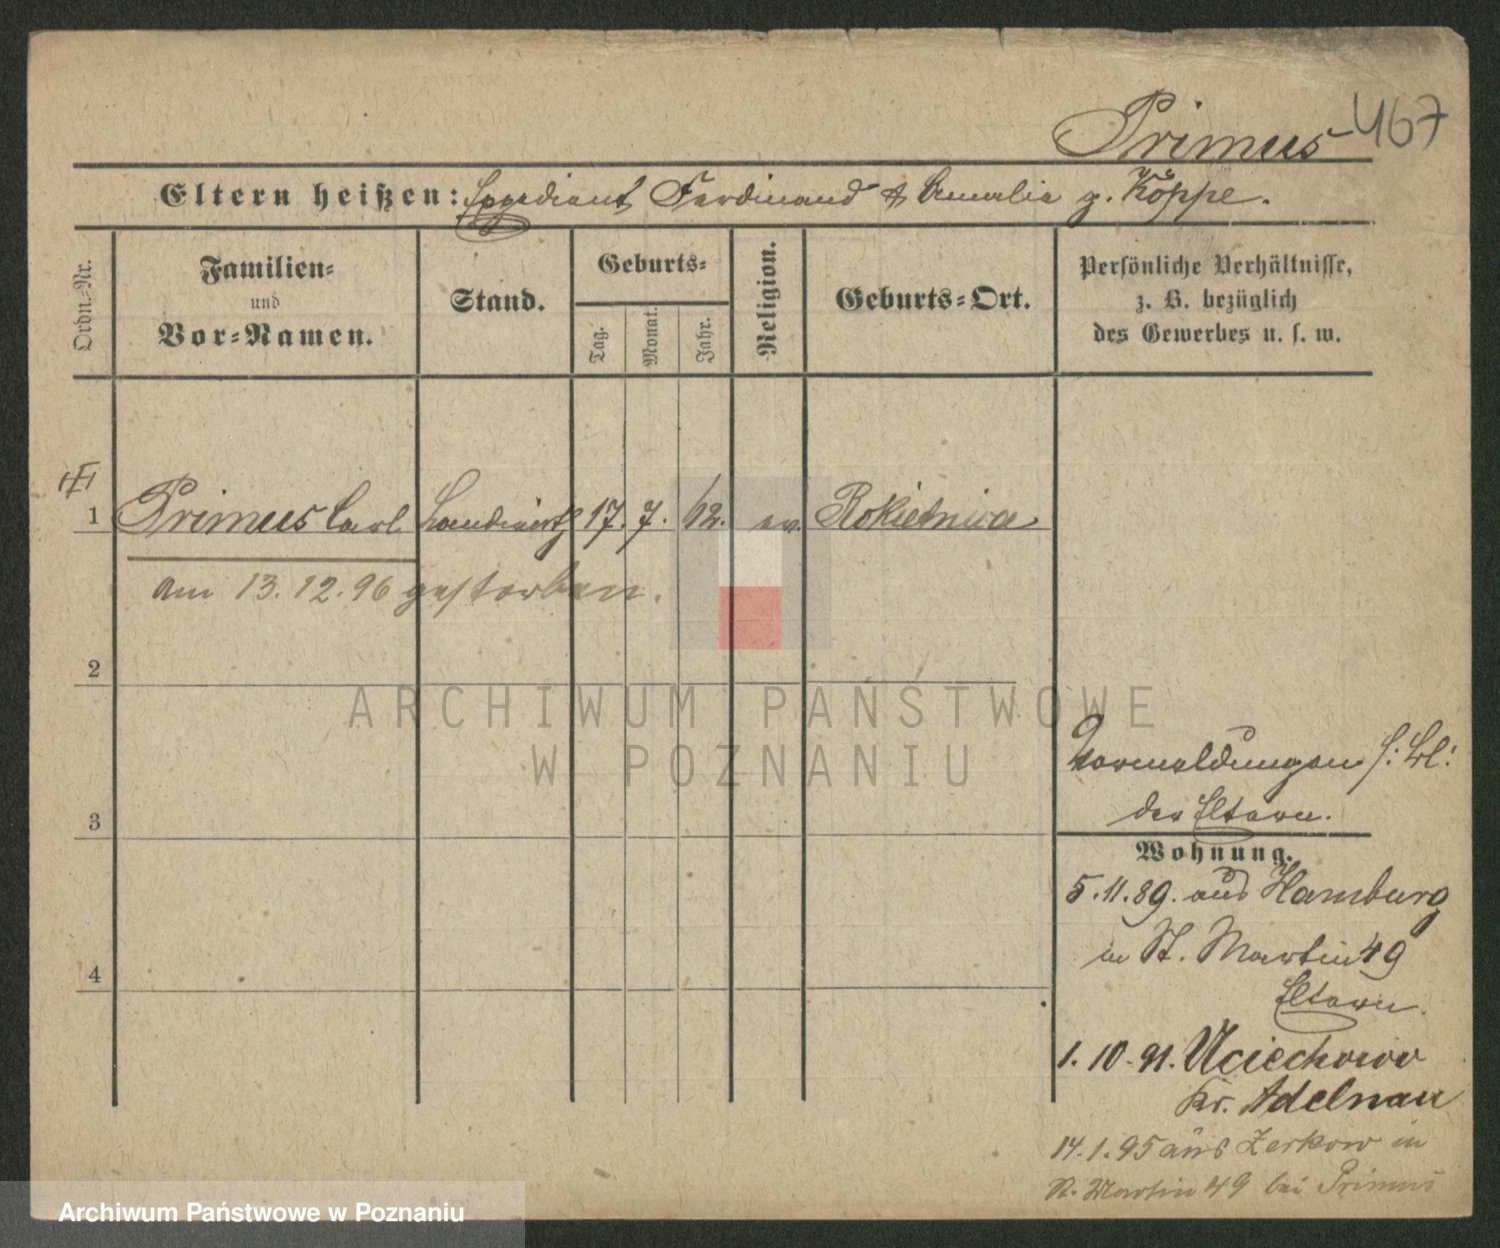 Primus 467
Eltern heißen: Expedient Ferdinand & Amalia g. Köppe.
Ordn.-Nr.
Familien-
und
Vor-Namen.
Stand.
Geburts-
Tag.
Monat.
Jahr.
Religion.
Geburts-Ort.
Persönliche Verhältnisse,
z. B. bezüglich
des Gewerbes u. s. w.
1 Primus Carl Landwirth 17. 7. 62. ev. Rokietnica
am 13.12.96 gestorben.
2
3
4
Vormeldungen s. Bl.
der Eltern.
Wohnung.
5.11.89. aus Hamburg
in St. Martin 49
Eltern.
1.10.91. Uciechowo
Kr. Adelnau
14.1.95 aus Zerkow in
St. Martin 49 bei Primus
ARCHIWUM PAŃSTWOWE
W POZNANIU
Archiwum Państwowe w Poznaniu